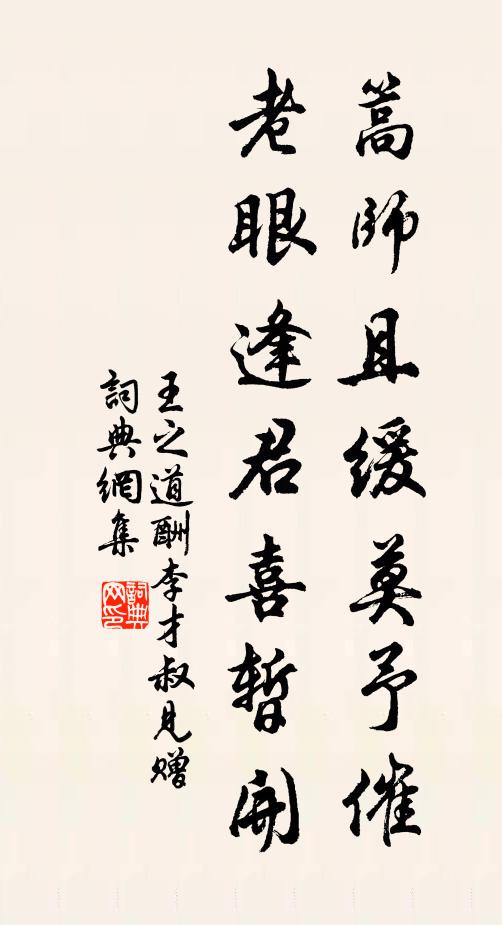 蒿師且緩莫予催
老眼逢君喜暫開
王之道酬李才叔見贈
詞典網集
詞典网印